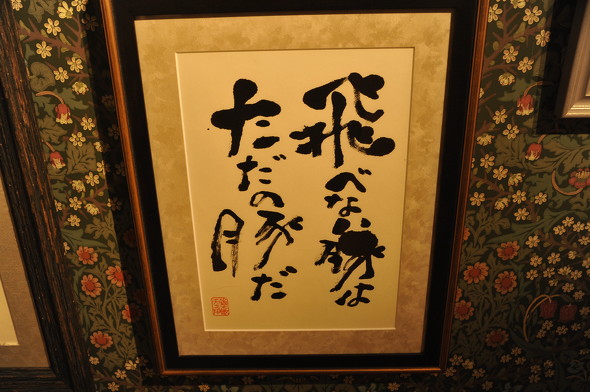 飛べない豚は
ただの豚だ